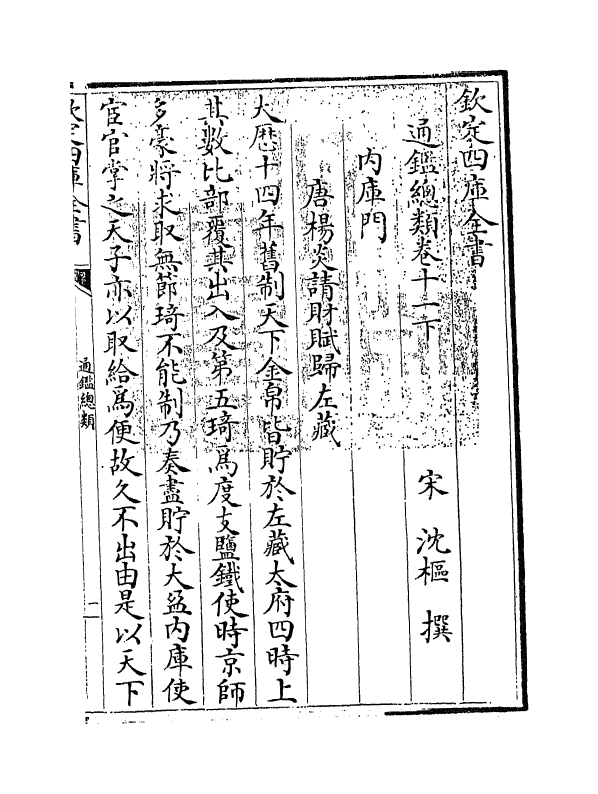 欽定四庫全書
通鑑總類卷十一下
宋 沈樞 撰
内庫門
唐楊炎請財賦歸左藏
大厯十四年舊制天下金帛皆貯於左藏太府四時上
其數比部覆其出入及第五琦爲度支鹽鐵使時京師
多豪將求取無節琦不能制乃奏盡貯於大盈内庫使
宦官掌之天子亦以取給爲便故久不出由是以天下
欽定四庫全書
通鑑總類
一